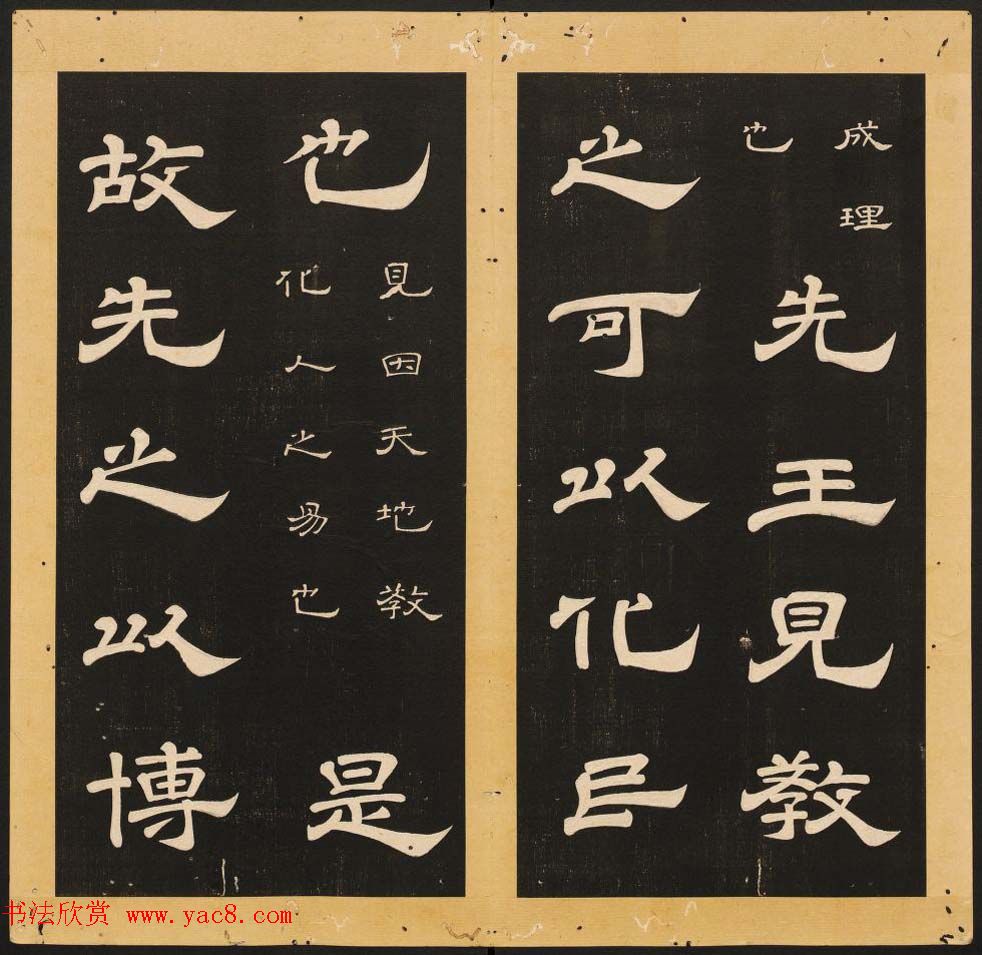 成理
也
先王見教
之可以化民
也
見因天地教
化人之易也
是
故先之以博
书法欣赏 www.yac8.com